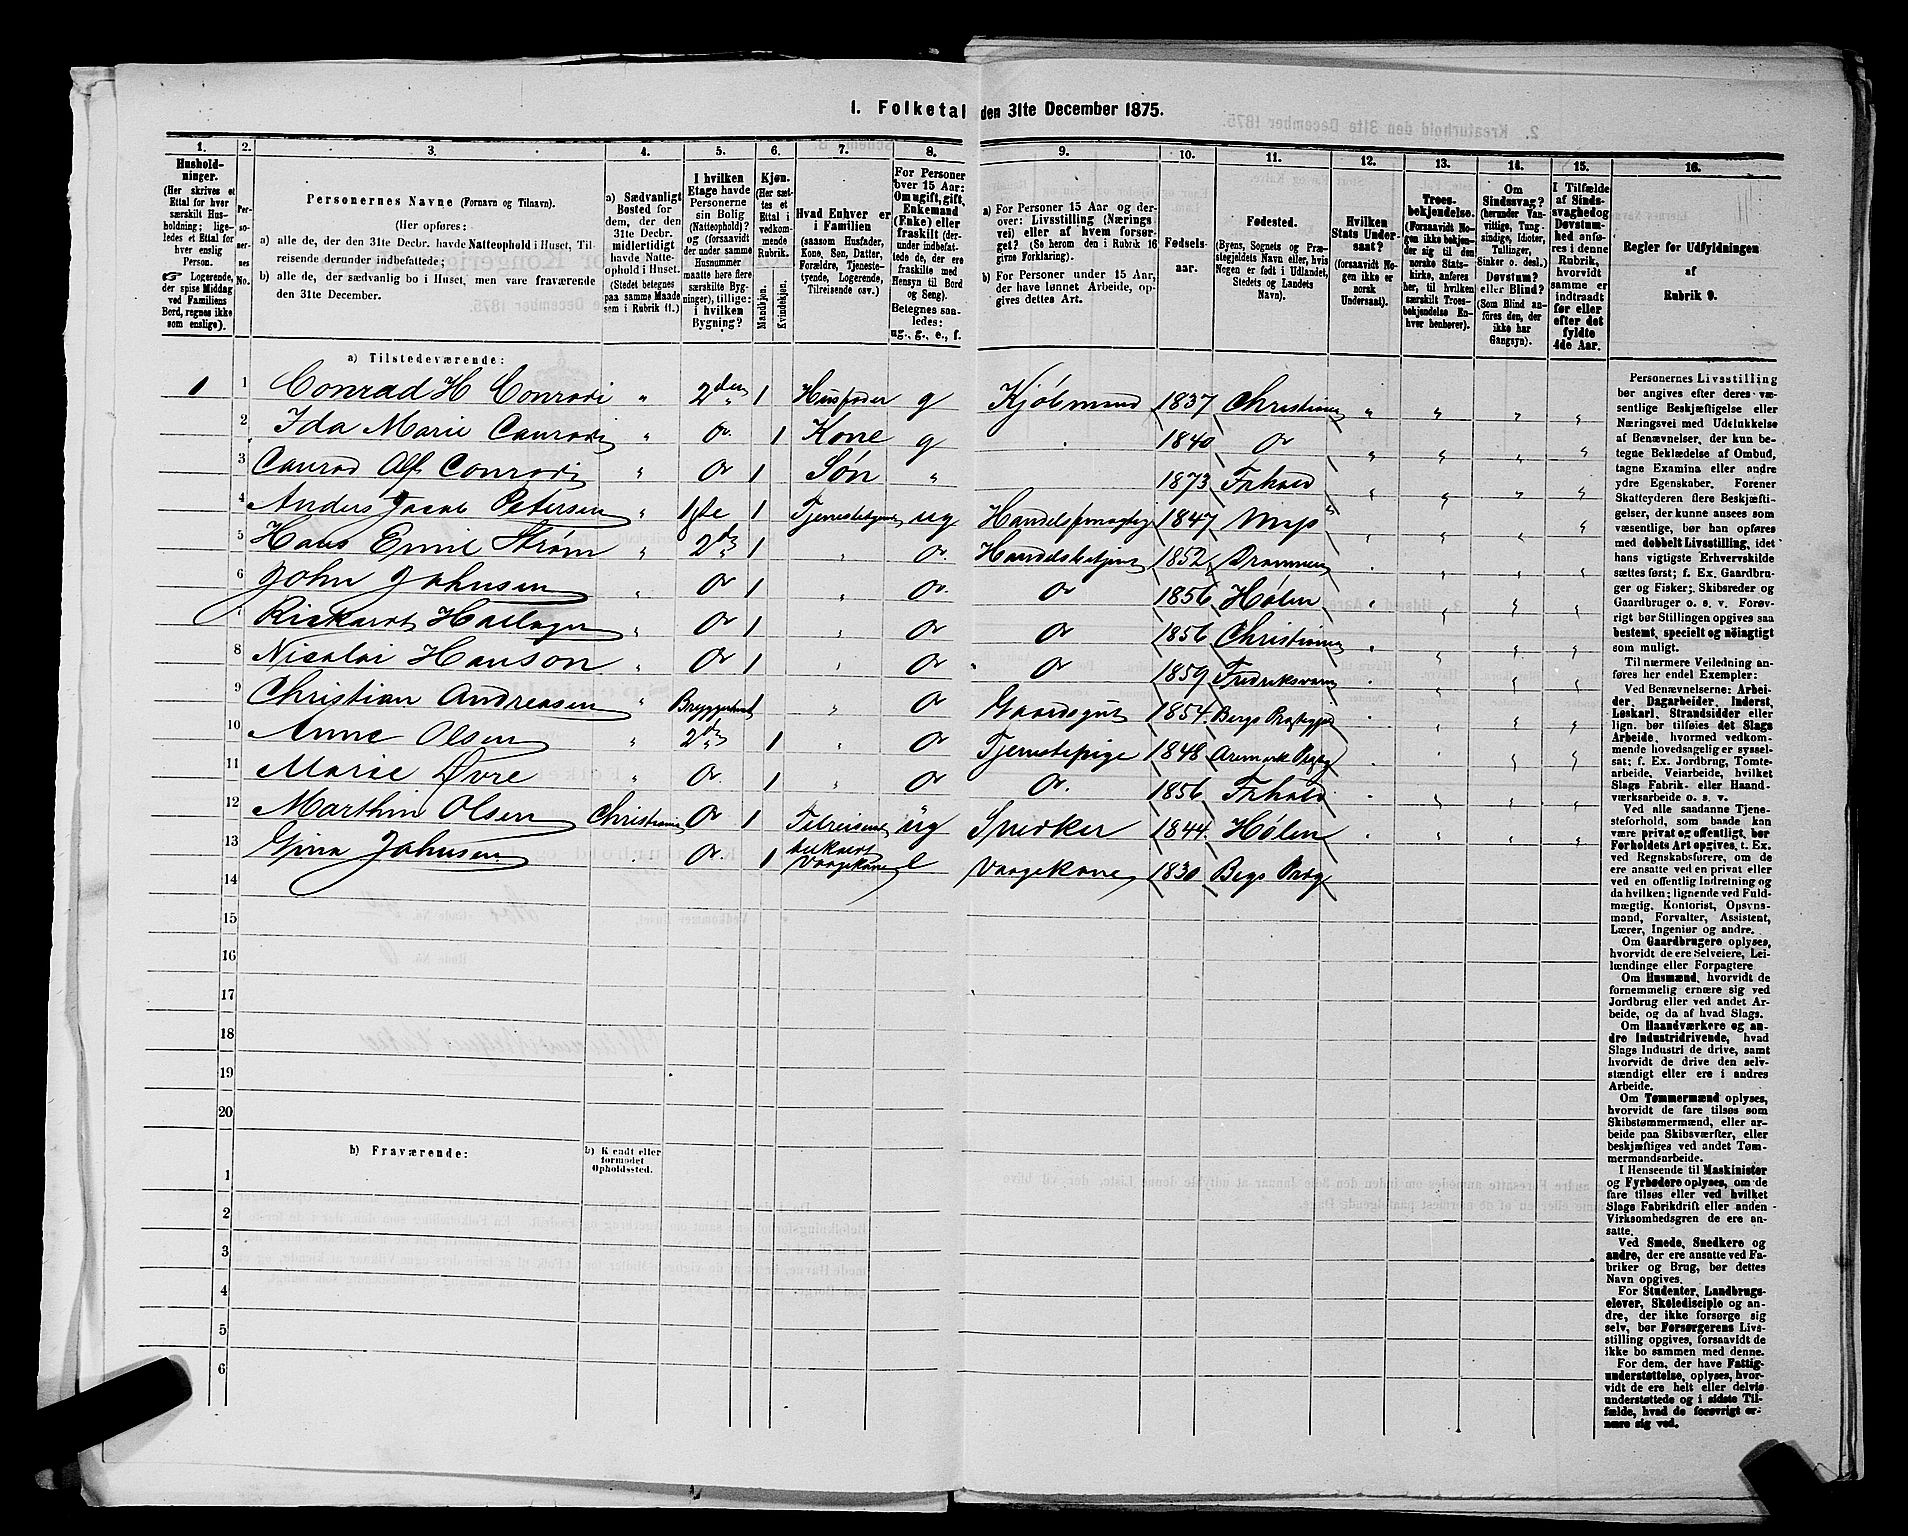 1. Folketal den 31te December 1875.
1. 2. 3. 4. 5. 6. 7. 8. 9. 10. 11. 12. 13. 14. 15. 16.
Hushold-
ninger.
(Her skrives et
Ettal for hver
særskilt Hus-
holdning; lige-
ledes et Ettal for
hver enslig
Person.
☞ Logerende,
der spise Middag
ved Familiens
Bord, regnes ikke
som enslige).
Per-
so-
ner-
nes
No.
Personernes Navne (Fornavn og Tilnavn).
(Her opføres:
a) alle de, der den 31te Decbr. havde Natteophold i Huset, Til-
reisende derunder indbefattede;
b) alle de, der sædvanlig bo i Huset, men vare fraværende
den 31te December.
a) Sædvanligt
Bosted for
dem, der den
31te Decbr.
midlertidigt
havde Natte-
ophold i Huset.
(Stedet betegnes
paa samme Maade
som i Rubrik 11.)
I hvilken
Etage havde
Personerne
sin Bolig
(Natteophold)?
og (forsaavidt
der under samme
Husnummer
maatte høre flere
særskilte Byg-
ninger), tillige:
i hvilken
Bygning?
Kjøn.
(Her sæt-
tes et
Ettal i
vedkom-
mende
Rubrik.
Mandkjøn.
Kvindekjøn.
Hvad Enhver er
i Familien
(saasom Husfader,
Kone, Søn, Datter,
Forældre, Tjeneste-
tyende, Logerende,
Tilreisende osv.)
For Personer
over 15 Aar:
Om ugift, gift,
Enkemand
(Enke) eller
fraskilt (der-
under indbefat-
tede de, der ere
fraskilte med
Hensyn til Bord
og Seng).
Betegnes saa-
ledes:
ug., g., e., f.
a) For Personer 15 Aar og der-
over: Livsstilling (Nærings-
vei) eller af hvem forsør-
get? (Se herom den i Rubrik 16
givne Forklaring).
b) For Personer under 15 Aar,
der have lønnet Arbeide, op-
gives dettes Art.
Fødsels-
aar.
Fødested.
(Byens, Sognets og Præ-
stegjeldets Navn eller, hvis
Nogen er født i Udlandet,
Stedets og Landets
Navn).
Hvilken
Stats Under-
saat?
(forsaavidt No-
gen ikke er
norsk
Undersaat).
Troes-
bekjendelse.
(Forsaavidt No-
gen ikke bekjen-
der sig til den
norske Stats-
kirke, anføres
her, til hvilken
særskilt Troes-
bekjendelse En-
hver henhører).
Om
Sindssvag?
(herunder Van-
vittige, Tung-
sindige, Idioter,
Tullinger,
Sinker o. desl.)
Døvstum?
eller Blind?
(Som Blind an-
føres den, der
ikke har
Gangsyn).
I Tilfælde
af Sinds-
svaghed og
Døvstum-
hed anfø-
res i denne
Rubrik,
hvorvidt
samme er
indtraadt
før eller
efter det
fyldte
4de Aar.
Regler for Udfyldningen
af
Rubrik 9.
a) Tilstedeværende:
1 1 Conrad H Conradi " 2den 1 Husfader g Kjøbmand 1837 Christiania " " " "
2 Ida Marie Conradi " Do 1 Kone g 1840 Do
3 Conrad Alf Conradi " Do 1 Søn " 1873 Frhald
4 Anders Jacob Petersen " 1ste 1 ug Handelsfuldmægtig 1847 Moss
5 Hans Emil Strøm " 2den 1 " Do Handelsbetjent 1852 Drammen
6 John Johnsen " Do 1 " Do Do 1856 Hølen
7 " Do 1 " Do Do 1856 Christiania
8 Nicolai Hanson " Do 1 " Do Do 1859 Fredriksværn
9 Christian Andreasen " Bryggerhuset 1 " Do Gaardsgut 1854 Bergs
10 Anne Olsen " 2den 1 " Do Tjenestepige 1848 Aremark
11 Marie Øvre " Do 1 " Do Do 1856 Frhald
12 Marthin Olsen Christiania Do 1 Tilreisende ug Snedker 1844 Hølen
13 Gina Johnsen Do 1 Vaagekone e Vaagekone 1830 Bergs
14
15
16
17
18
19
20
b) Fraværende:
b) Kjendt eller
formodet
Opholdssted.
1
2
3
4
5
6
Personernes Livsstilling
bør angives efter deres væ-
sentlige Beskjæftigelse eller
Næringsvei med Udelukkelse
af Benævnelser, der kun be-
tegne Beklædelse af Ombud,
tagne Examina eller andre
ydre Egenskaber. Forener
Skatteyderen flere Beskjæfti-
gelser, der kunne ansees som
væsentlige, bør han opføres
med dobbelt Livsstilling, idet
hans vigtigste Erhvervskilde
sættes først; f. Ex. Gaardbru-
ger og Fisker; Skibsreder og
Gaardbruger o. s. v. Forøv-
rigt bør Stillingen opgives saa
bestemt, specielt og nøiagtigt
som muligt.
Til nærmere Veiledning an-
føres her endel Exempler:
Ved Benævnelserne: Arbei-
der, Dagarbeider, Inderst,
Løskarl, Strandsidder eller
lign. bør tilføies det Slags
Arbeide, hvormed vedkom-
mende hovedsagelig er syssel-
sat; f. Ex. Jordbrug, Tomte-
arbeide, Veiarbeide, hvilket
Slags Fabrik- eller Haand-
værksarbeide o. s. v.
Ved alle saadanne Tjene-
steforhold, som baade kan
være privat og offentligt, bør
Forholdets Art opgives, t. Ex.
ved Regnskabsførere, om de
ere ansatte ved en privat eller
ved en offentlig Indretning og
da hvilken; lignende ved Fuld-
mægtig, Kontorist, Opsyns-
mand, Forvalter, Assistent,
Lærer, Ingeniør og andre.
Om Gaardbrugere oplyses,
hvorvidt de ere Selveiere, Lei-
lændinge eller Forpagtere
Om Husmænd, hvorvidt de
fornemmelig ernære sig ved
Jordbrug eller ved andet Ar-
beide, og da af hvad Slags.
Om Haandværkere og an-
dre Industridrivende, hvad
Slags Industri de drive, samt
hvorvidt de drive den selv-
stændigt eller ere i andres
Arbeide.
Om Tømmermænd oplyses,
hvorvidt de fare tilsøs som
Skibstømmermænd, eller ar-
beide paa Skibsværfter, eller
beskjæftiges ved andet Tøm-
mermandsarbeide.
I Henseende til Maskinister
og Fyrbødere oplyses, om de
fare tilsøs eller ved hvilket
Slags Fabrikdrift eller anden
Virksomhedsgren de ere an-
satte.
Ved Smede, Snedkere og
andre, der ere ansatte ved Fa-
briker og Brug, bør dettes
Navn opgives.
For Studenter, Landbrugs-
elever, Skoledisciple og an-
dre, der ikke forsørge sig
selv, bør Forsørgerens Livs-
stilling opgives, forsaavidt de
ikke bo sammen med denne.
For dem, der have Fattig-
understøttelse, oplyses, hvor-
vidt de ere helt eller delvis
understøttede og i sidste Til-
fælde, hvad de forøvrigt er-
nære sig ved.